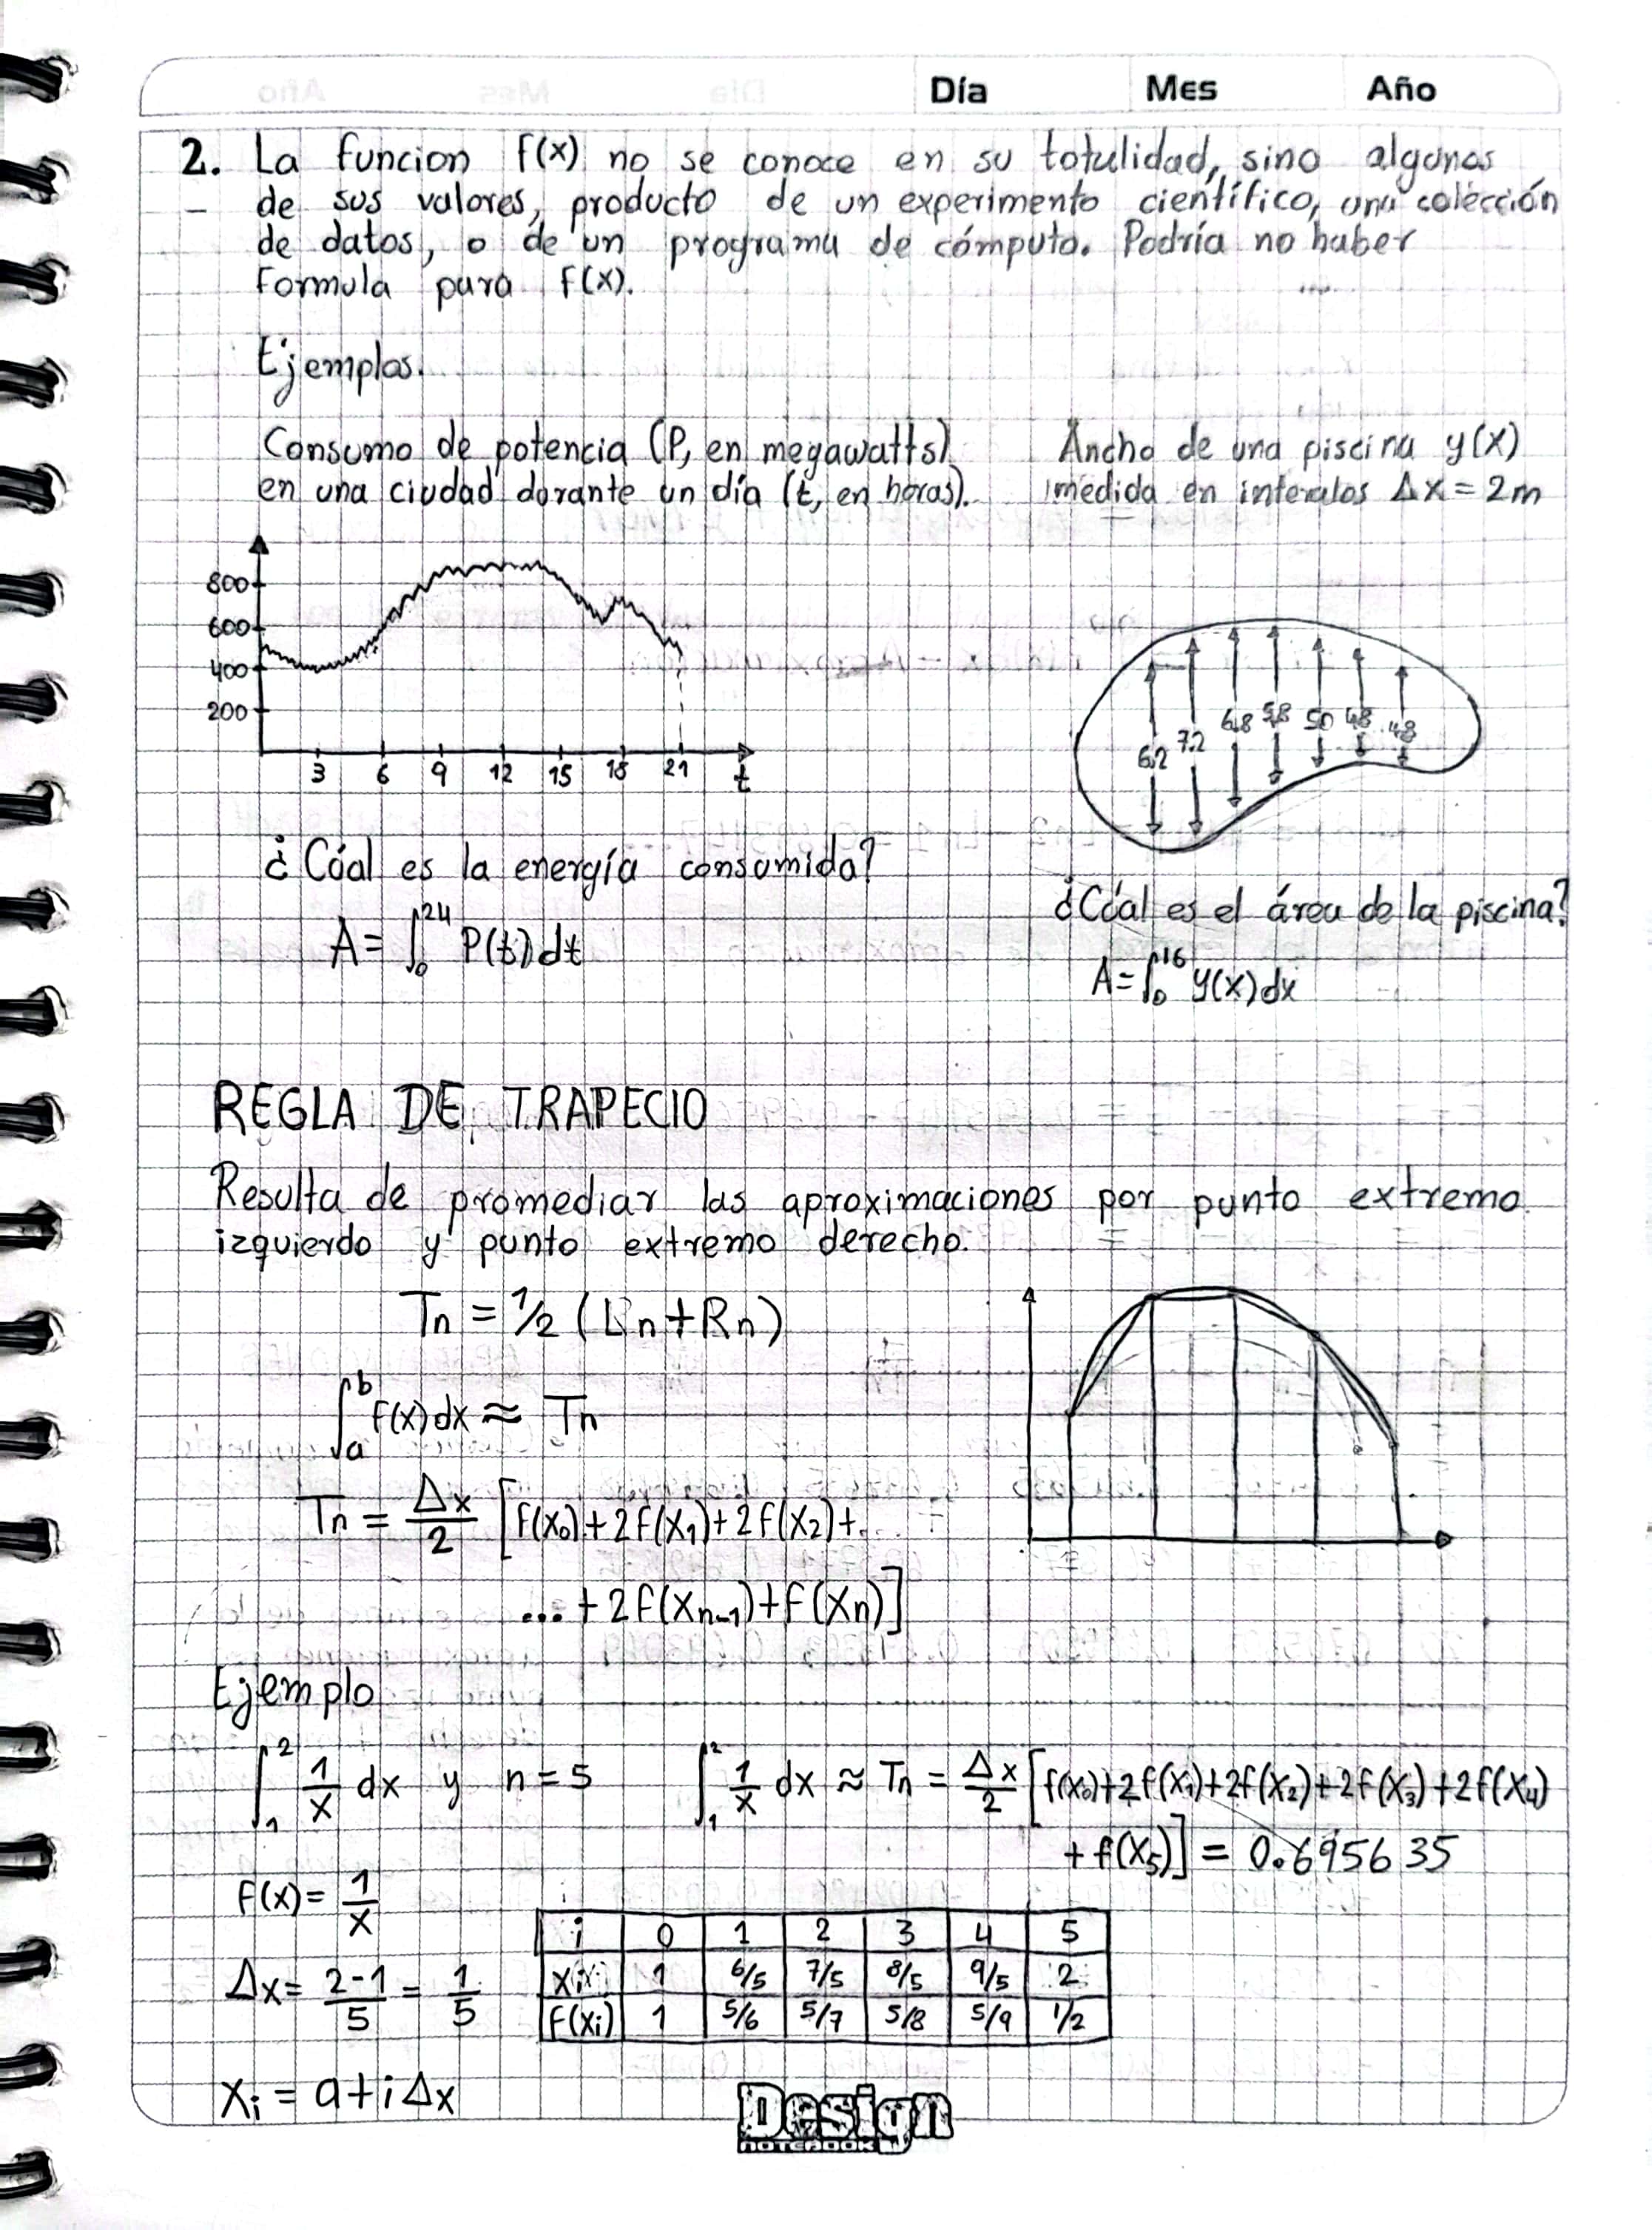 Día Mes Año
2. La funcion f(x) no se conoce en su totulidad, sino algunos
de sus valores, producto de un experimento científico, una colección
de datos, o de un programa de cómputo. Podría no haber
Formula para f(x).
Ejemplos.
Consumo de potencia (P, en megawatts)
en una ciudad durante un día (t, en horas).
Ancho de una piscina y(x)
medida en intervalos Δx = 2m
800
600
400
200
3 6 9 12 15 18 21
t
6.2 7.2 6.8 5.8 5.0 4.8 4.8
¿Cúal es la energía consumida?
A = ∫₀²⁴ P(t)dt
¿Cúal es el área de la piscina?
A = ∫₀¹⁶ y(x)dx
REGLA DE TRAPECIO
Resulta de promediar las aproximaciones por punto extremo
izquierdo y punto extremo derecho.
Tn = 1/2 (Ln + Rn)
∫ₐᵇ f(x)dx ≈ Tn
Tn = Δx/2 [f(x₀) + 2f(x₁) + 2f(x₂) + ...
... + 2f(xₙ₋₁) + f(xₙ)]
Ejemplo
∫₁² 1/x dx y n = 5
∫₁² 1/x dx ≈ Tn = Δx/2 [f(x₀) + 2f(x₁) + 2f(x₂) + 2f(x₃) + 2f(x₄)
+ f(x₅)] = 0.695635
f(x) = 1/x
Δx = 2-1/5 = 1/5
i 0 1 2 3 4 5
xi 1 6/5 7/5 8/5 9/5 2
f(xi) 1 5/6 5/7 5/8 5/9 1/2
xi = a + iΔx
Design
NOTEBOOK